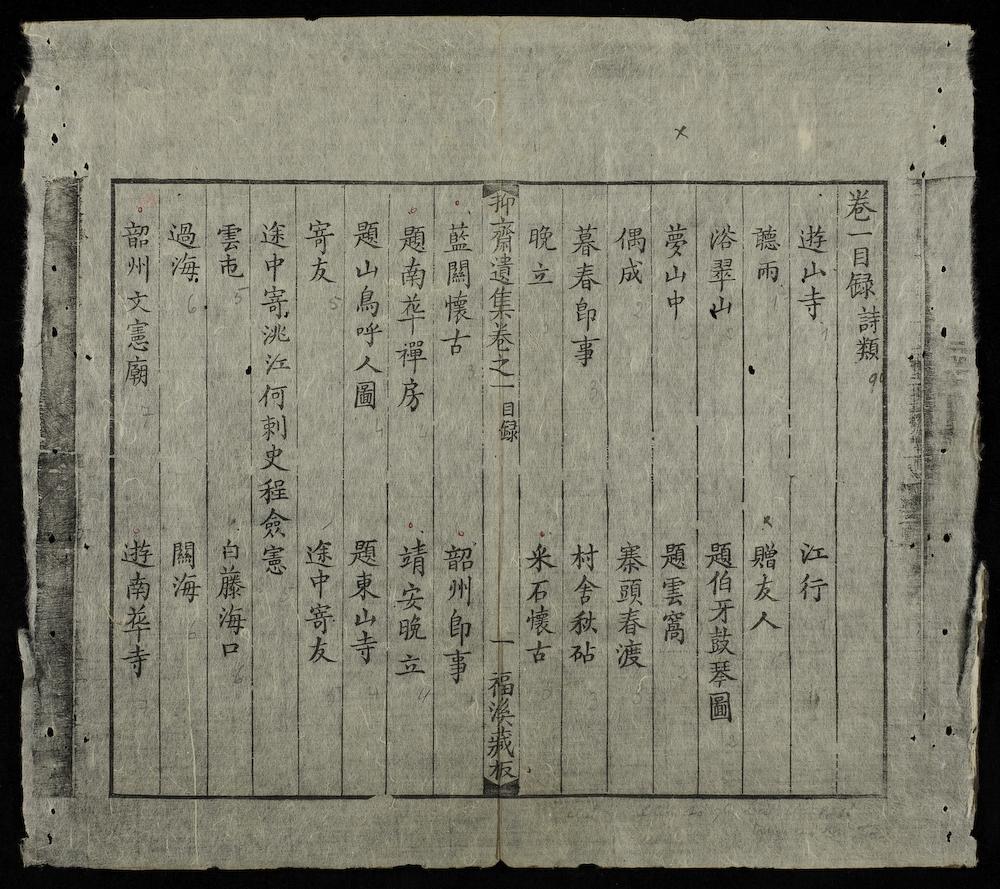 卷一目録 詩類
遊山寺 江行
聽雨 贈友人
浴翠山 題伯牙鼓琴圖
夢山中 題雲窩
偶成 寨頭春渡
暮春即事 村舍秋砧
晚立 采石懷古
抑齋遺集卷之一 目録 一 福溪藏板
藍關懷古 韶州即事
題南華禪房 靖安晚立
題山鳥呼人圖 題東山寺
寄友 途中寄友
途中寄洮江何刺史程僉憲
雲屯 白藤海口
過海 關海
韶州文憲廟 遊南華寺